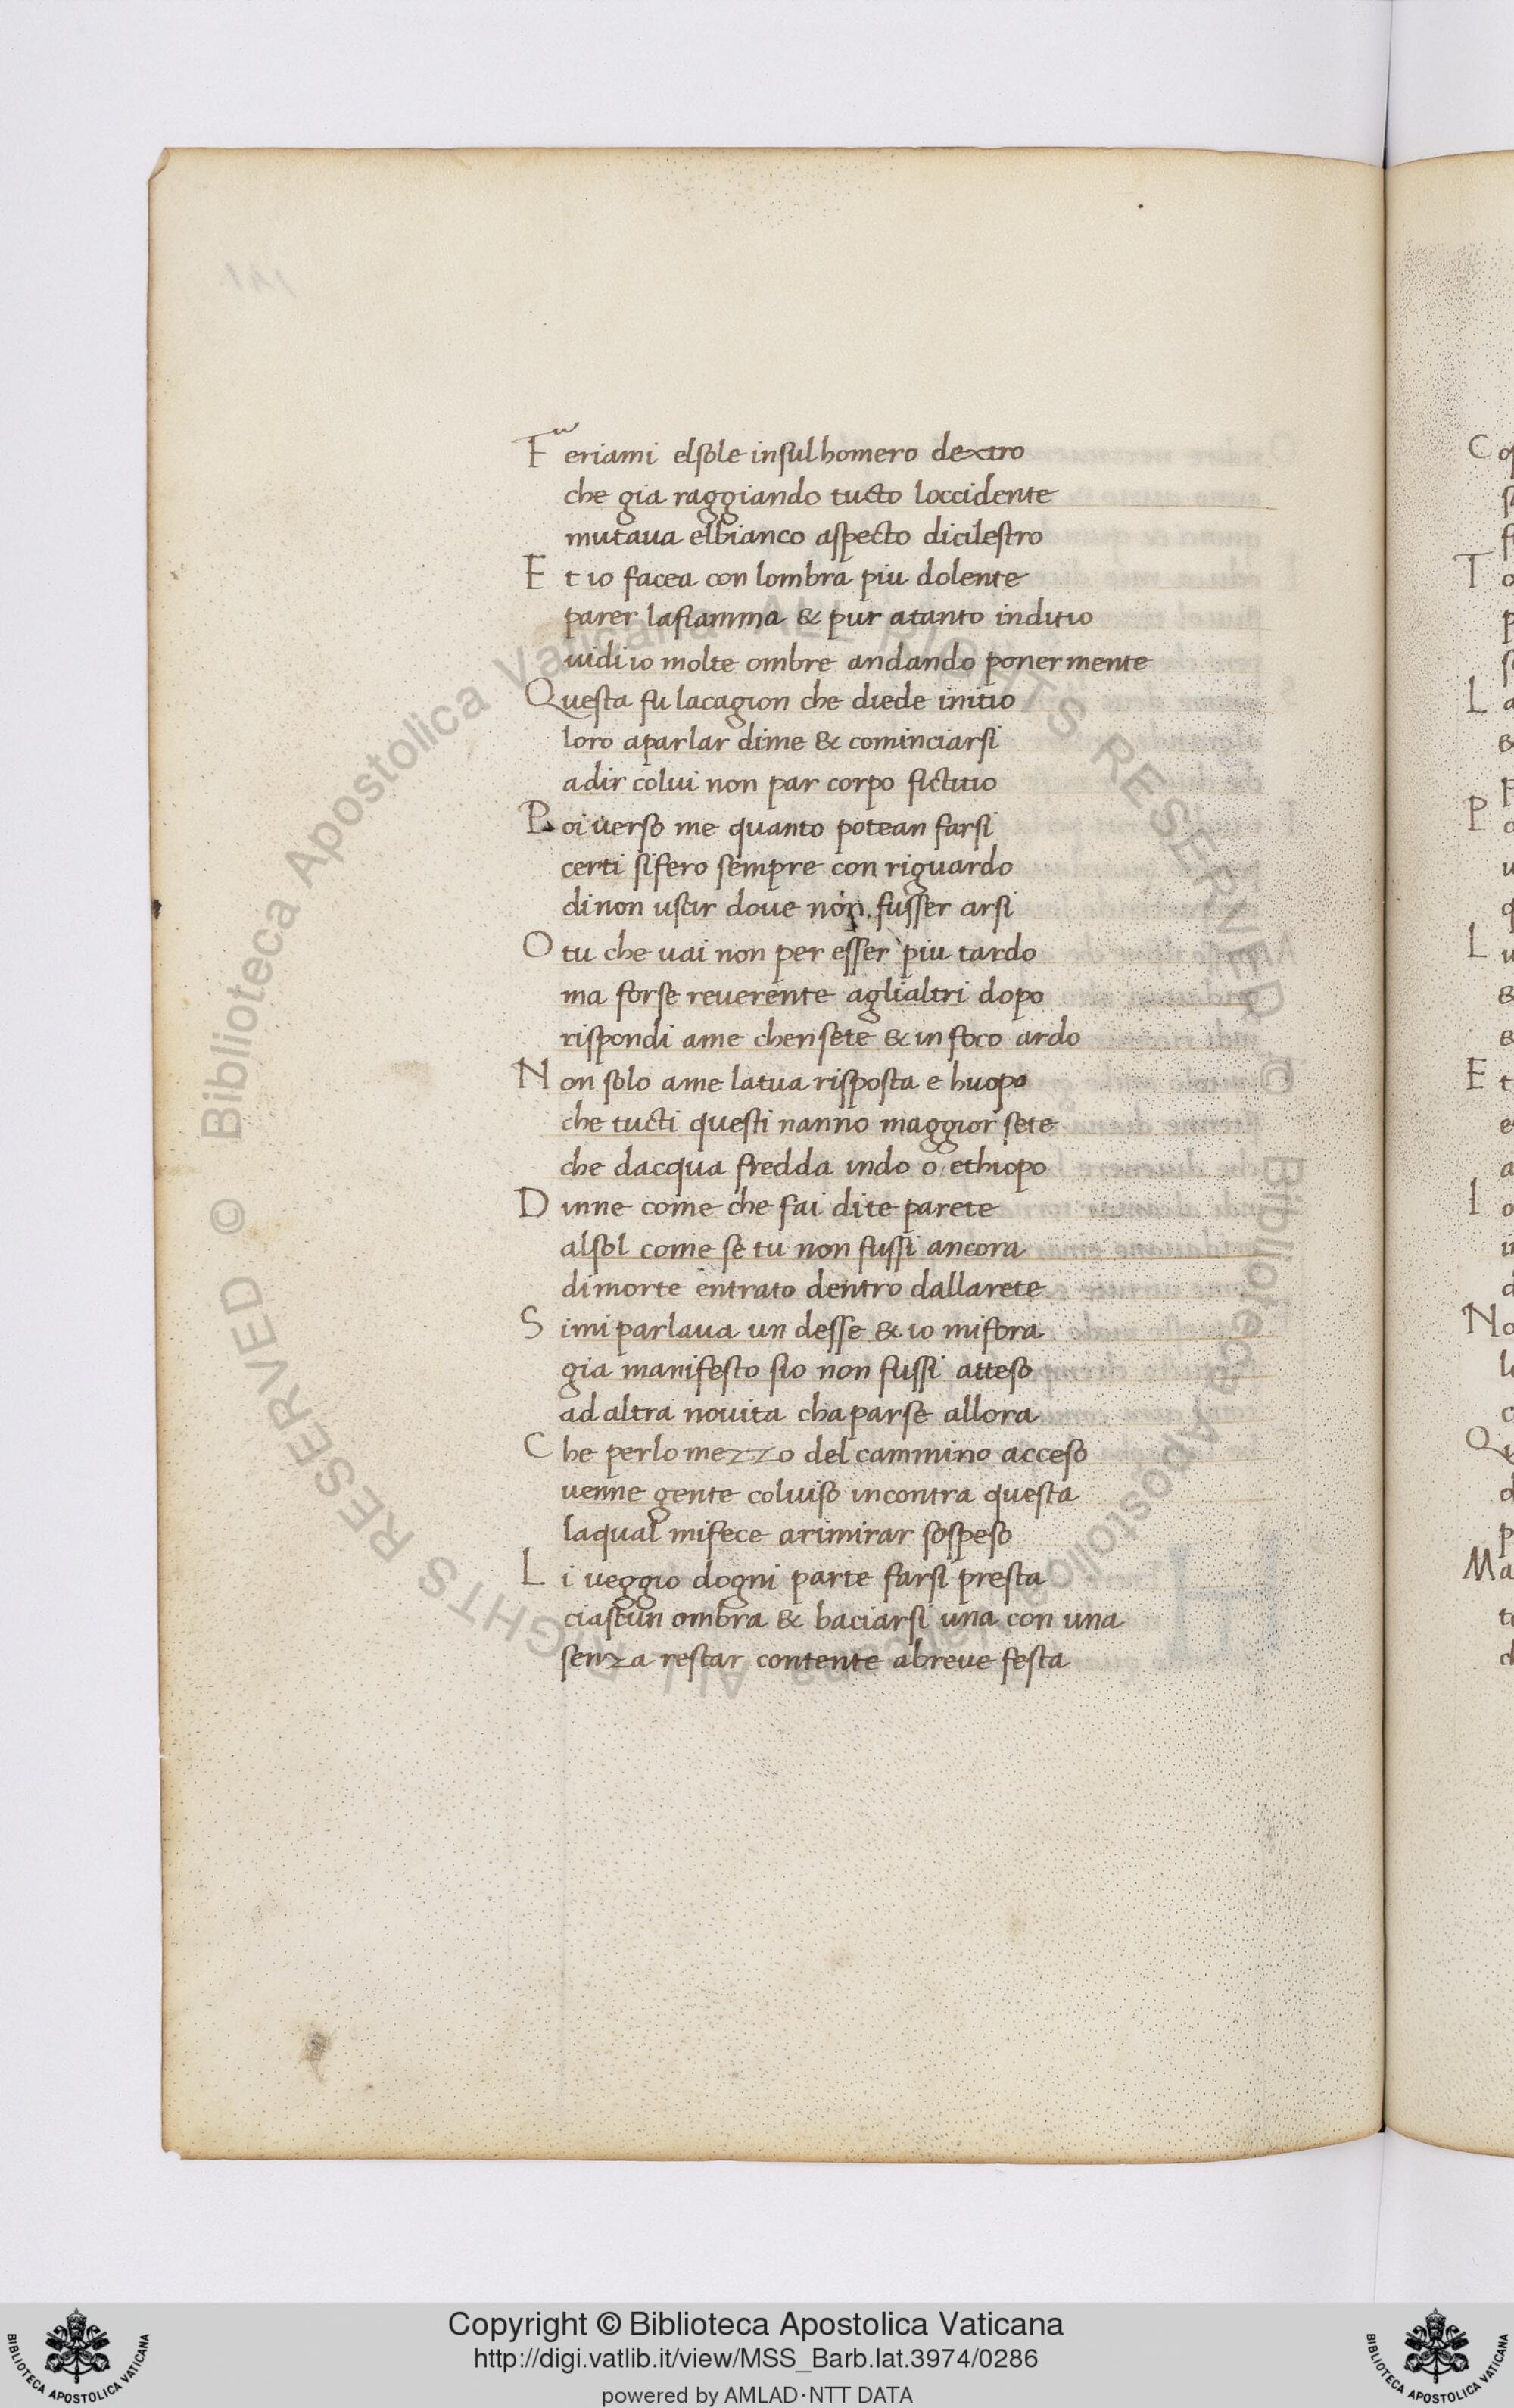 Feriami elsole insulhomero dextro
che gia raggiando tucto loccidente
mutaua elbianco aspecto dicilestro
Et io facea con lombra piu dolente
parer lafiamma & pur atanto inditio
uidi io molte ombre andando poner mente
Questa fu lacagion che diede initio
loro aparlar dime & cominciarsi
adir colui non par corpo fictitio
Poi uerso me quanto potean farsi
certi sifero sempre con riguardo
dinon uscir doue non fusser arsi
O tu che uai non per esser piu tardo
ma forse reuerente aglialtri dopo
rispondi ame chensete & in foco ardo
Non solo ame latua risposta e huopo
che tucti questi nanno maggior sete
che dacqua fredda indo o ethiopo
Dinne come che fai dite parete
alsol come se tu non fussi ancora
dimorte entrato dentro dallarete
Simi parlaua un desse & io mifora
gia manifesto sio non fussi atteso
ad altra nouita chaparse allora
Che perlo mezzo del cammino acceso
uenne gente coluiso incontra questa
laqual mifece arimirar sospeso
Li ueggio dogni parte farsi presta
ciascun ombra & baciarsi una con una
senza restar contente abreue festa
Copyright © Biblioteca Apostolica Vaticana
http://digi.vatlib.it/view/MSS_Barb.lat.3974/0286
powered by AMLAD·NTT DATA